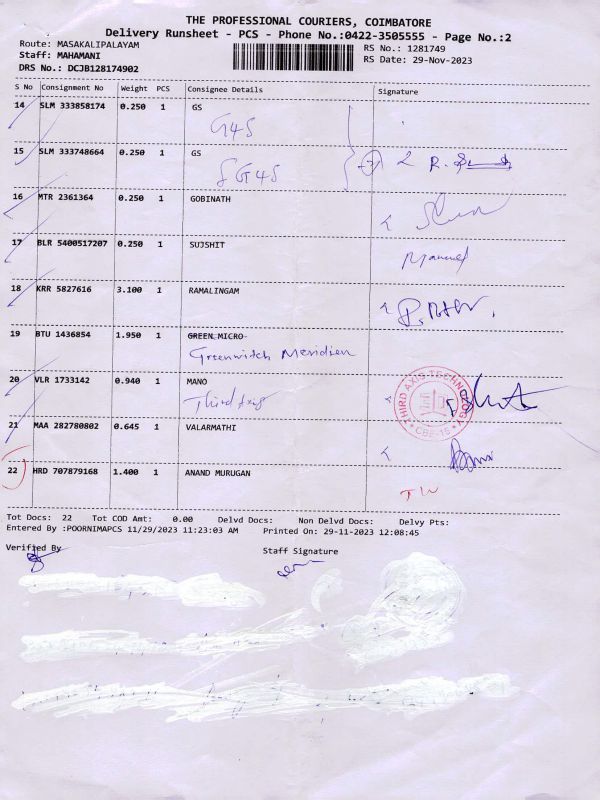 THE PROFESSIONAL COURIERS, COIMBATORE
Delivery Runsheet - PCS - Phone No.:0422-3505555 - Page No.:2
Route: MASAKALIPALAYAM
RS No.: 1281749
Staff: MAHAMANI
RS Date: 29-Nov-2023
DRS No.: DCJB128174902
S No Consignment No Weight PCS Consignee Details Signature
14 SLM 333858174 0.250 1 GS
G4S
15 SLM 333748664 0.250 1 GS
G4S
16 MTR 2361364 0.250 1 GOBINATH
17 BLR 5400517207 0.250 1 SUJSHIT
18 KRR 5827616 3.100 1 RAMALINGAM
19 BTU 1436854 1.950 1 GREEN MICRO
Greenwitch Meridien
20 VLR 1733142 0.940 1 MANO
Third Axis
THIRD AXIS TECHNOLOGY
CBE-15
21 MAA 282780802 0.645 1 VALARMATHI
22 HRD 707879168 1.400 1 ANAND MURUGAN
Tot Docs: 22 Tot COD Amt: 0.00 Delvd Docs: Non Delvd Docs: Delvy Pts:
Entered By :POORNIMAPCS 11/29/2023 11:23:03 AM Printed On: 29-11-2023 12:08:45
Verified By Staff Signature